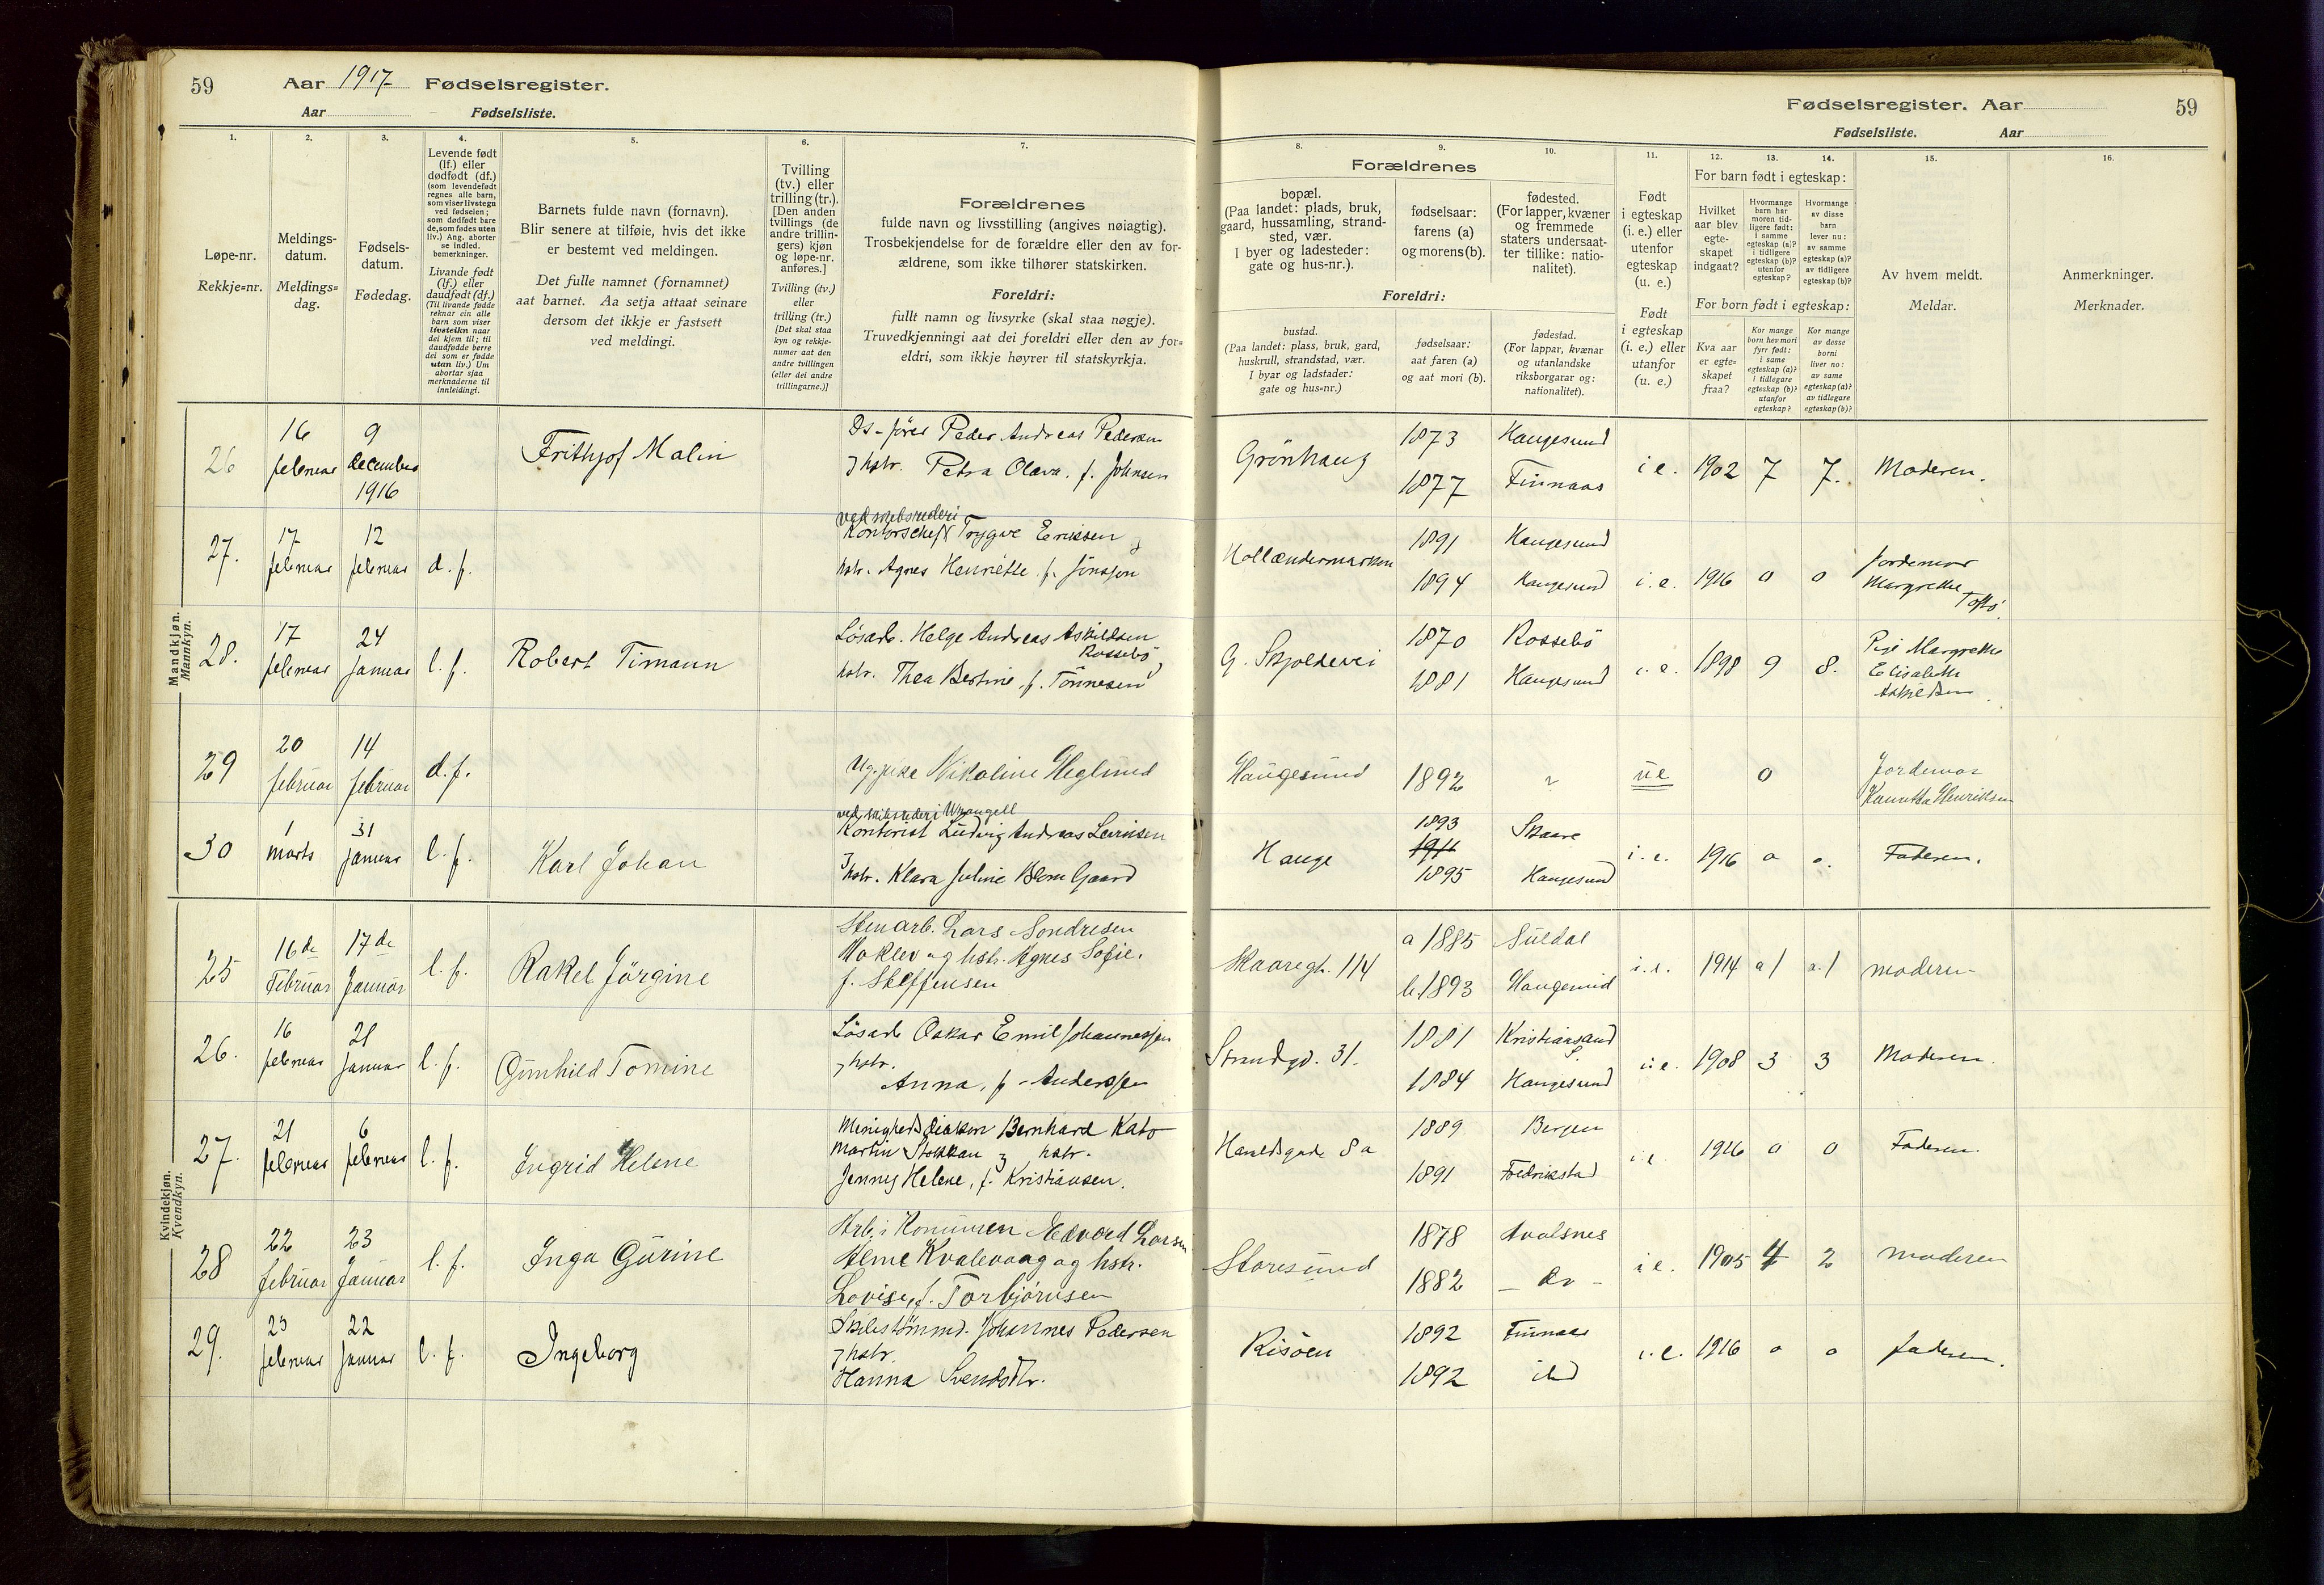 59
Aar 1917 Fødselsregister.
Aar Fødselsliste.
Fødselsregister. Aar
59
Fødselsliste. Aar
1. 2. 3. 4. 5. 6. 7. 8. 9. 10. 11. 12. 13. 14. 15. 16.
Løpe-nr.
Rekkje=nr.
Meldings-
datum.
Meldings=
dag.
Fødsels-
datum.
Fødedag.
Levende født
(lf.) eller
dødfødt (df.)
(som levendefødt
regnes alle barn,
som viser livstegn
ved fødselen;
som dødfødt bare
de, som fødes uten
liv.) Ang. aborter
se indled.
bemerkninger.
Livande født
(lf.) eller
daudfødt (df.)
(Til livande fødde
reknar ein alle
barn som viser
livsteikn naar
dei kjem til; til
daudfødde berre
dei som er fødde
utan liv.) Um
abortar sjaa
merknaderne til
innleidingi.
Barnets fulde navn (fornavn).
Blir senere at tilføie, hvis det ikke
er bestemt ved meldingen.
Det fulle namnet (fornamnet)
aat barnet. Aa setja attaat seinare
dersom det ikkje er fastsett
ved meldingi.
Tvilling
(tv.) eller
trilling (tr.).
[Den anden
tvillings (de
andre trillin-
gers) kjøn
og løpe-nr.
anføres.]
Tvilling (tv.)
eller
trilling (tr.)
[Det skal staa
kyn og rekkje-
numer aat den
andre tvillingen
(eller dei andre
trillingarne.)]
Forældrenes
fulde navn og livsstilling (angives nøiagtig).
Trosbekjendelse for de forældre eller den av for-
ældrene, som ikke tilhører statskirken.
Foreldri:
fullt namn og livsyrke (skal staa nøgje).
Truvedkjenningi aat dei foreldri eller den av for=
eldri, som ikkje høyrer til statskyrkja.
Forældrenes
bopæl.
(Paa landet: plads, bruk,
gaard, hussamling, strand-
sted, vær.
I byer og ladesteder:
gate og hus-nr.).
fødselsaar:
farens (a)
og morens (b).
fødested.
(For lapper, kvæner
og fremmede
staters undersaat-
ter tillike: natio-
nalitet).
Foreldri:
bustad.
(Paa landet: plass, bruk, gard,
huskrull, strandstad, vær.
I byar og ladstader:
gate og hus-nr.)
fødselsaar:
aat faren (a)
og aat mori (b).
fødestad.
(For lappar, kvænar
og utanlandske
riksborgarar og:
nationalitet).
Født
i egteskap
(i. e.) eller
utenfor
egteskap
(u. e.)
Født
i egteskap
(i. e.) eller
utanfor
(u. e.)
For barn født i egteskap:
Hvilket
aar blev
egte-
skapet
indgaat?
Hvormange
barn har
moren tid-
ligere født:
i samme
egteskap (a)?
i tidligere
egteskap (b)?
utenfor
egteskap?
Hvormange
av disse
barn
lever nu:
av samme
egteskap (a)?
av tidligere
egteskap (b)?
For born født i egteskap:
Kva aar
er egte-
skapet
fraa?
Kor mange
born hev mori
fyrr født:
i same
egteskap (a)?
i tidlegare
egteskap (b)?
utanfor
egteskap?
Kor mange
av desse
borni
liver no:
av same
egteskap (a)?
av tidlegare
egteskap (b)?
Av hvem meldt.
Meldar.
Anmerkninger.
Merknader.
Mandkjøn.
Mannkyn.
26 16 februar 9 december 1916 Frithjof Malin
Peder Andreas Pedersen
hstr. Petra Olava, f. Johnsen
Grönhaug 1873 Haugesund
1877 Finnaas i e. 1902 7 7. Moderen.
27. 17 februar 12 februar d. f.
ved skibsrederi
Kontorchef Trygve Eriksen
hstr. Agnes Henriette f. Jonsson
Hollændermarken 1891 Haugesund
1894 Haugesund i. e. 1916 0 0 Jordemor
Margrethe
Toftö.
28. 17 februar 24 januar l. f. Robert Timann
Lösarb. Helge Andreas Askildsen
Rossebö
hstr. Thea Bertine, f. Tönnesen
G. Skjoldevei 1870 Rossebö
1881 Haugesund i. e. 1898 9 8. Pige Margrethe
Elisabeth
Askildsen
29 20 februar 14 februar d. f.
Ug. pike Nikoline Heglund
Haugesund 1892 " ue 0 Jordemor
Henriksen
30 1 marts 31 januar l. f. Karl Johan
ved skibsrederi Wrangell
Kontorist Ludvig Andreas Larsen
hstr. Klara Juline Gaard
Hauge 1893 Skaare
1911
1895 Haugesund i. e. 1916 0 0. Faderen.
Kvindekjøn.
Kvendkyn.
25 16de Februar 17de Januar l. f. Rakel Jörgine
Stenarb. Lars Sondresen
Moklev og hstr. Agnes Sofie.
f. Steffensen
Skaaregt. 114 a 1885 Suldal
b. 1893 Haugesund i. e. 1914 a 1 a. 1 moderen
26. 16 februar 21 januar l. f. Gunhild Tomine
Lösarb Oskar Emil Johannessen
hstr.
Anna, f. Anderssen
Strandgd. 31. 1881 Kristiansand
S.
1884 Haugesund i. e. 1908 3 3 Moderen.
27. 21 februar 6 februar l. f. Ingrid Helene
Menighedsdiakon Bernhard Kato
Martin Stokkan hstr.
Jenny Helene, f. Kristiansen.
Haraldsgade 8a 1889 Bergen
1891 Fredrikstad i. e. 1916 0 0 Faderen.
28 22 februar 23 Januar l. f. Inga Gurine
Arb. i Komunen Edvard Larsen
Kvalevaag og hstr.
Lovise, f. Torbjörnsen
Storesund 1878 Avalsnes
1882 – do – i e. 1905 4 2 moderen
29. 23 februar 22 januar l. f. Ingeborg
Skibstömmd. Johannes Pedersen
hstr.
Hanna Svendsdtr.
Risöen 1892 Finnaas
1892 ibd i. e. 1916 0 0 faderen.